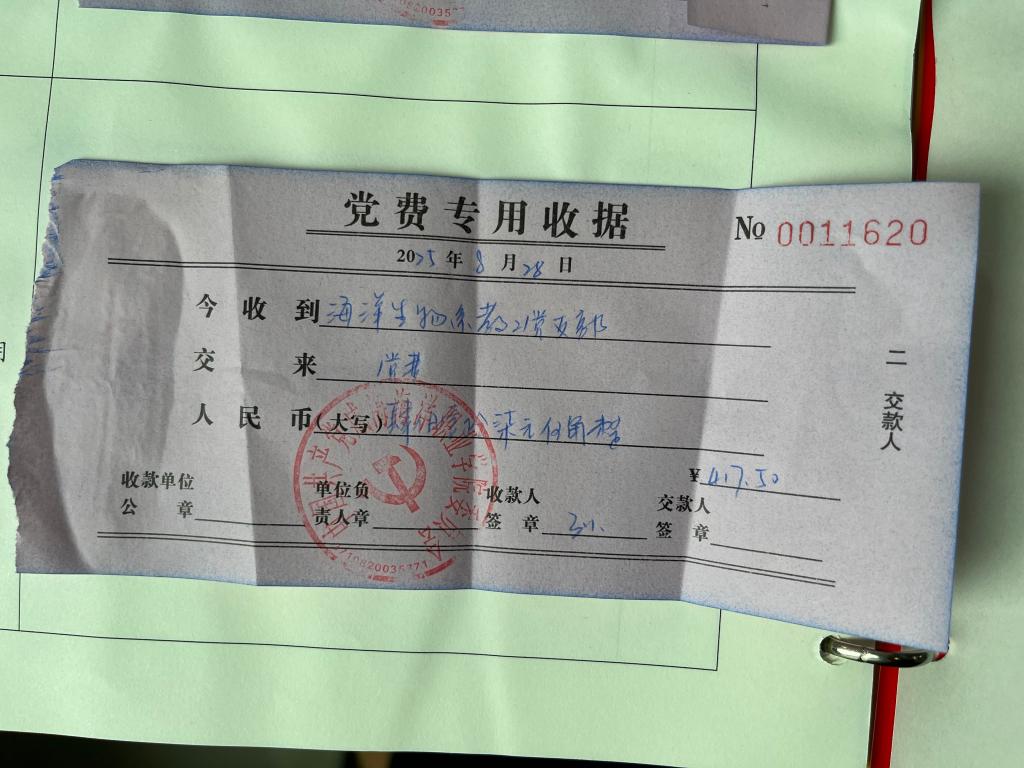 党费专用收据
No 0011620
2025年8月28日
今收到 海洋生物系教工党支部
交来 党费
人民币(大写) 肆佰壹拾柒元伍角整
¥ 417.50
收款单位公章 单位负责人章 收款人签章 交款人签章
二 交款人